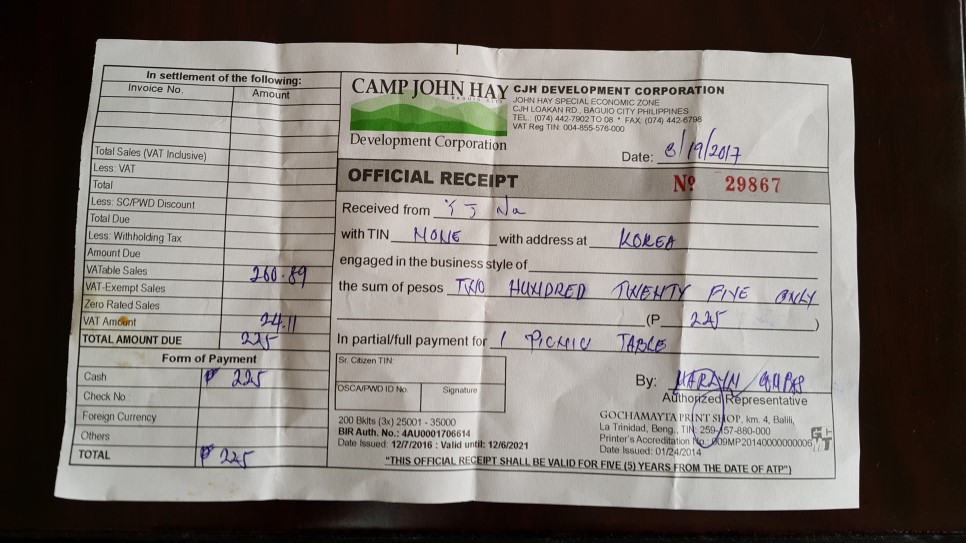 In settlement of the following:
Invoice No. Amount
Total Sales (VAT Inclusive)
Less: VAT
Total
Less: SC/PWD Discount
Total Due
Less: Withholding Tax
Amount Due
VATable Sales 200.89
VAT-Exempt Sales
Zero Rated Sales
VAT Amount 24.11
TOTAL AMOUNT DUE 225
Form of Payment
Cash ₱ 225
Check No.
Foreign Currency
Others
TOTAL ₱ 225
CAMP JOHN HAY
Development Corporation
CJH DEVELOPMENT CORPORATION
JOHN HAY SPECIAL ECONOMIC ZONE
CJH LOAKAN RD., BAGUIO CITY PHILIPPINES
TEL.: (074) 442-7902 TO 08 * FAX: (074) 442-6798
VAT Reg TIN: 004-855-576-000
Date: 8/19/2017
OFFICIAL RECEIPT Nº 29867
Received from YJ Na
with TIN NONE with address at KOREA
engaged in the business style of
the sum of pesos TWO HUNDRED TWENTY FIVE ONLY
(P 225 )
In partial/full payment for 1 PICNIC TABLE
Sr. Citizen TIN:
OSCA/PWD ID No. Signature
By:
Authorized Representative
200 Bklts (3x) 25001 - 35000
BIR Auth. No.: 4AU0001706614
Date Issued: 12/7/2016 : Valid until: 12/6/2021
GOCHAMAYTA PRINT SHOP, km. 4, Balili,
La Trinidad, Beng., TIN: 259-457-880-000
Printer's Accreditation No.: 009MP20140000000006
Date Issued: 01/24/2014
"THIS OFFICIAL RECEIPT SHALL BE VALID FOR FIVE (5) YEARS FROM THE DATE OF ATP")